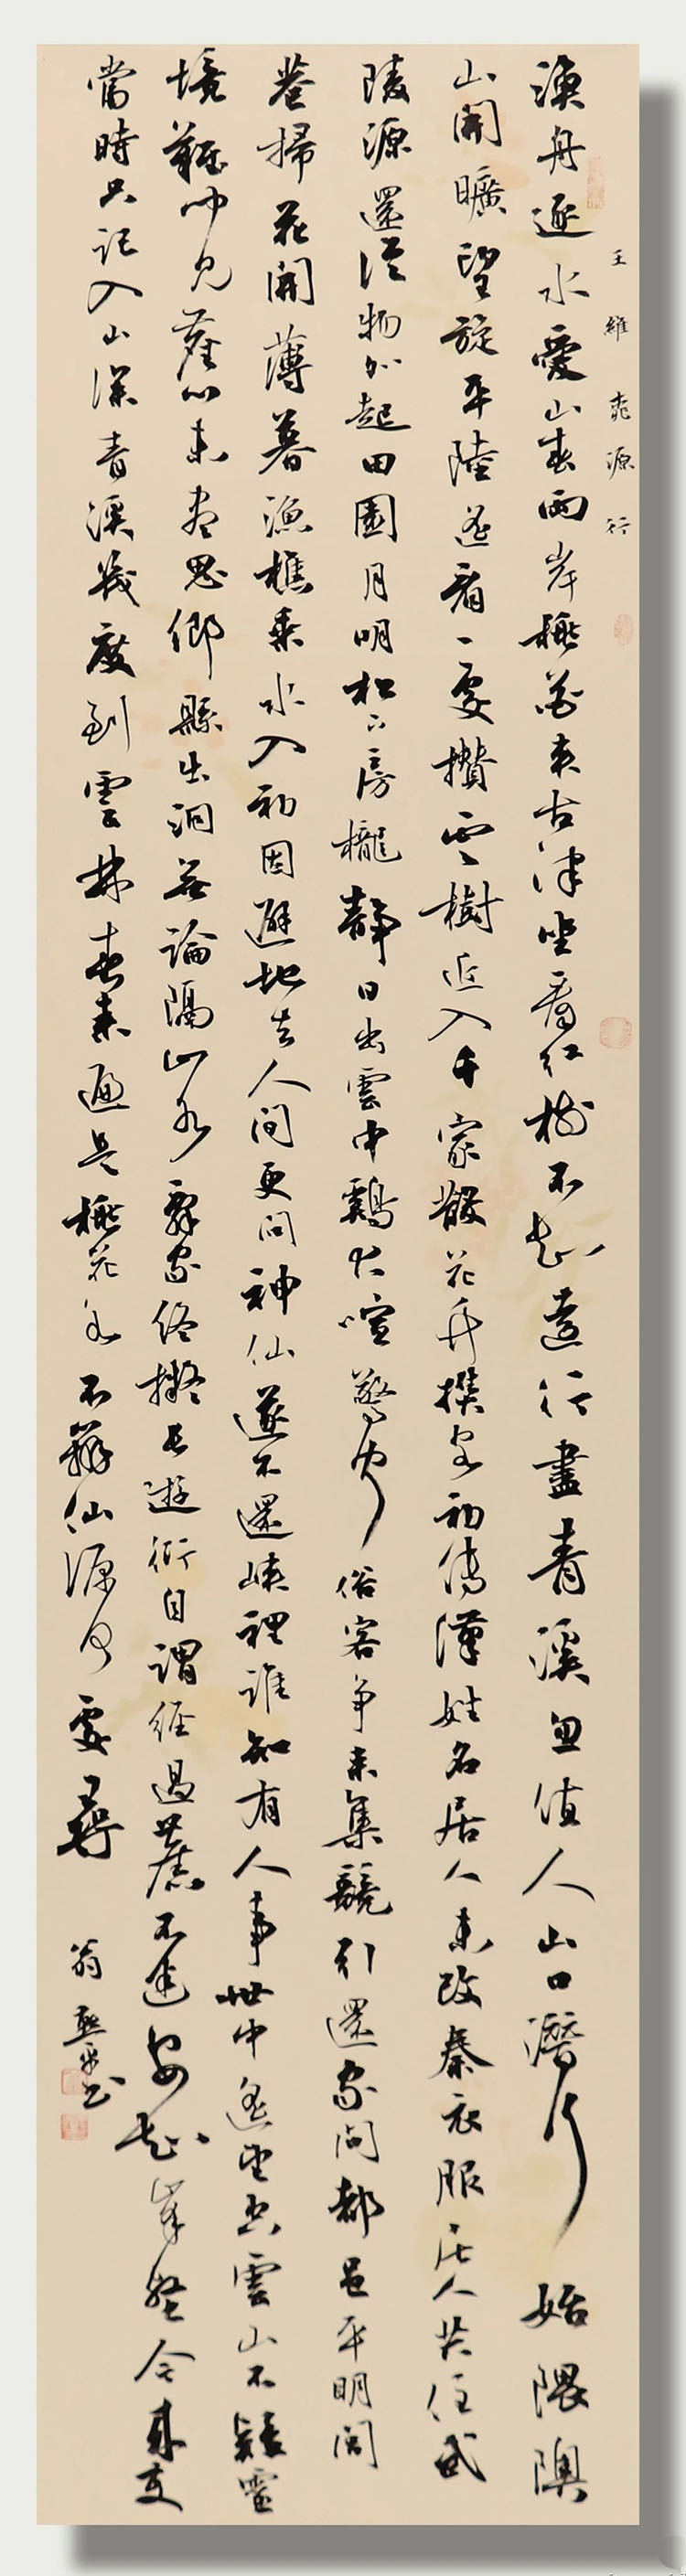 王維桃源行
漁舟逐水愛山春兩岸桃花夾古津坐看紅樹不知遠行盡青溪忽值人山口潛行始隈隩
山開曠望旋平陸遙看一處攢雲樹近入千家散花竹樵客初傳漢姓名居人未改秦衣服居人共住武
陵源還從物外起田園月明松下房櫳靜日出雲中鷄犬喧驚聞俗客爭來集競引還家問都邑平明閭
巷掃花開薄暮漁樵乘水入初因避地去人間更問神仙遂不還峽裡誰知有人事世中遙望空雲山不疑靈
境難聞見塵心未盡思鄉縣出洞無論隔山水辭家終擬長遊衍自謂經過舊不迷安知峯壑今來變
當時只記入山深青溪幾度到雲林春來遍是桃花水不辨仙源何處尋
翁